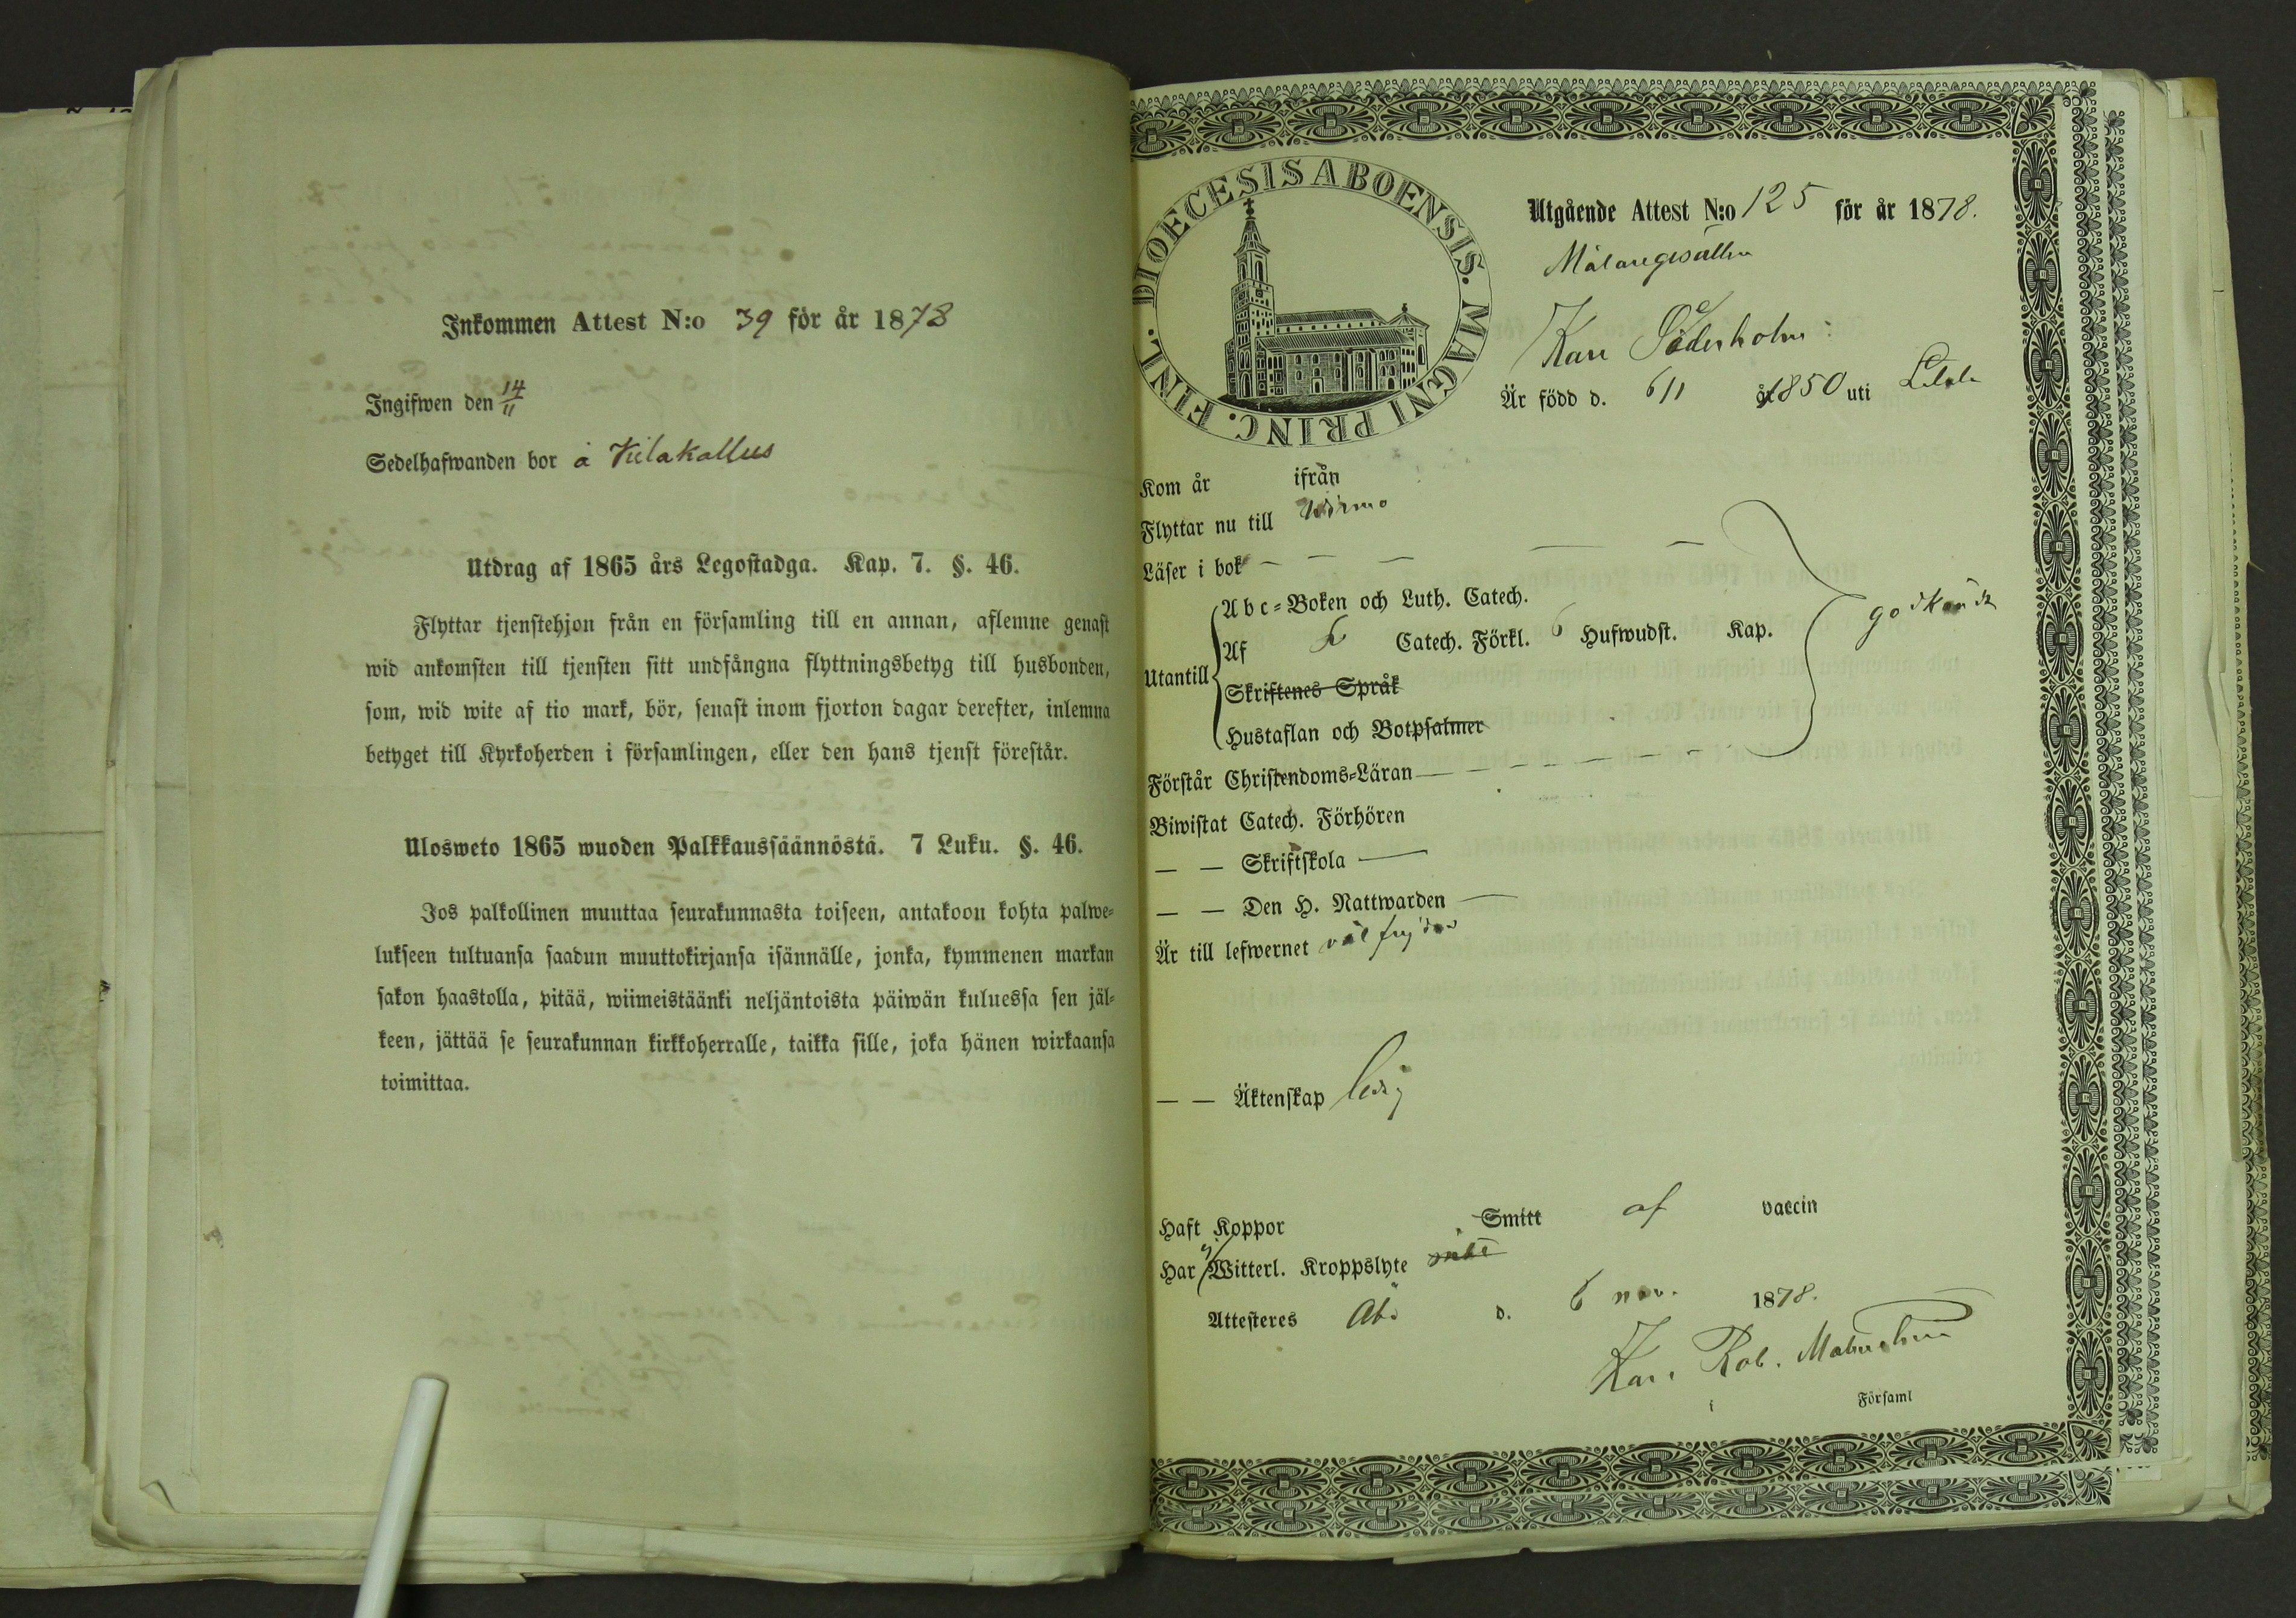 Inkommen Attest N:o 39 för år 1878
Ingifwen den 14/11
Sedelhafwanden bor å Viilakallus
Utdrag af 1865 års Legostadga. Kap. 7. §. 46.
Flyttar tjenstehjon från en församling till en annan, aflemne genast
wid ankomsten till tjensten sitt undfångna flyttningsbetyg till husbonden,
som, wid wite af tio mark, bör, senast inom fjorton dagar derefter, inlemna
betyget till Kyrkoherden i församlingen, eller den hans tjenst förestår.
Ulosweto 1865 wuoden Palkkaussäännöstä. 7 Luku. §. 46.
Jos palkollinen muuttaa seurakunnasta toiseen, antakoon kohta palwe=
lukseen tultuansa saadun muuttokirjansa isännälle, jonka, kymmenen markan
sakon haastolla, pitää, wiimeistäänki neljäntoista päiwän kuluessa sen jäl=
keen, jättää se seurakunnan kirkkoherralle, taikka sille, joka hänen wirkaansa
toimittaa.
DIOECESIS ABOENSIS. MAGNI PRINC. FINL.
Utgående Attest N:o 125 för år 1878.
Målaregesällen
Karl Söderholm
Är född d. 6/1 år 1850 uti
Kom år ifrån
Flyttar nu till Wirmo
Läser i bok
Abc=Boken och Luth. Catech.
Utantill Af Catech. Förkl. 6 Hufwudst. Kap. godkändt
Skriftenes Språk
Hustaflan och Botpsalmer
Förstår Christendoms=Läran
Biwistat Catech. Förhören
— — Skriftskola
— — Den H. Nattwarden
Är till lefwernet väl frejdad
— — Äktenskap ledig
Haft Koppor Smitt af vaccin
Har ej Witterl. Kroppslyte
Attesteres Åbo d. 6 nov. 1878.
Karl Rob. Malmström
i Församl